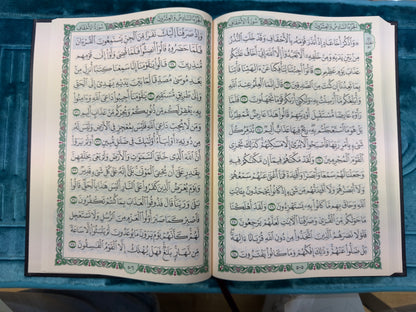 الجزء السادس والعشرون
سورة الأحقاف
۞ وَٱذْكُرْ أَخَا عَادٍ إِذْ أَنذَرَ قَوْمَهُۥ بِٱلْأَحْقَافِ وَقَدْ خَلَتِ ٱلنُّذُرُ
مِنۢ بَيْنِ يَدَيْهِ وَمِنْ خَلْفِهِۦٓ أَلَّا تَعْبُدُوٓا۟ إِلَّا ٱللَّهَ إِنِّىٓ أَخَافُ عَلَيْكُمْ
عَذَابَ يَوْمٍ عَظِيمٍ ٢١ قَالُوٓا۟ أَجِئْتَنَا لِتَأْفِكَنَا عَنْ ءَالِهَتِنَا فَأْتِنَا
بِمَا تَعِدُنَآ إِن كُنتَ مِنَ ٱلصَّٰدِقِينَ ٢٢ قَالَ إِنَّمَا ٱلْعِلْمُ عِندَ ٱللَّهِ
وَأُبَلِّغُكُم مَّآ أُرْسِلْتُ بِهِۦ وَلَٰكِنِّىٓ أَرَىٰكُمْ قَوْمًا تَجْهَلُونَ ٢٣ فَلَمَّا
رَأَوْهُ عَارِضًا مُّسْتَقْبِلَ أَوْدِيَتِهِمْ قَالُوا۟ هَٰذَا عَارِضٌ مُّمْطِرُنَا بَلْ هُوَ
مَا ٱسْتَعْجَلْتُم بِهِۦ رِيحٌ فِيهَا عَذَابٌ أَلِيمٌ ٢٤ تُدَمِّرُ كُلَّ
شَىْءٍۭ بِأَمْرِ رَبِّهَا فَأَصْبَحُوا۟ لَا يُرَىٰٓ إِلَّا مَسَٰكِنُهُمْ كَذَٰلِكَ نَجْزِى
ٱلْقَوْمَ ٱلْمُجْرِمِينَ ٢٥ وَلَقَدْ مَكَّنَّٰهُمْ فِيمَآ إِن مَّكَّنَّٰكُمْ فِيهِ
وَجَعَلْنَا لَهُمْ سَمْعًا وَأَبْصَٰرًا وَأَفْـِٔدَةً فَمَآ أَغْنَىٰ عَنْهُمْ سَمْعُهُمْ
وَلَآ أَبْصَٰرُهُمْ وَلَآ أَفْـِٔدَتُهُم مِّن شَىْءٍ إِذْ كَانُوا۟ يَجْحَدُونَ بِـَٔايَٰتِ
ٱللَّهِ وَحَاقَ بِهِم مَّا كَانُوا۟ بِهِۦ يَسْتَهْزِءُونَ ٢٦ وَلَقَدْ أَهْلَكْنَا
مَا حَوْلَكُم مِّنَ ٱلْقُرَىٰ وَصَرَّفْنَا ٱلْـَٔايَٰتِ لَعَلَّهُمْ يَرْجِعُونَ ٢٧
فَلَوْلَا نَصَرَهُمُ ٱلَّذِينَ ٱتَّخَذُوا۟ مِن دُونِ ٱللَّهِ قُرْبَانًا ءَالِهَةًۢ
بَلْ ضَلُّوا۟ عَنْهُمْ وَذَٰلِكَ إِفْكُهُمْ وَمَا كَانُوا۟ يَفْتَرُونَ ٢٨
٥٠٥
الجزء السادس والعشرون
سورة الأحقاف
وَإِذْ صَرَفْنَآ إِلَيْكَ نَفَرًا مِّنَ ٱلْجِنِّ يَسْتَمِعُونَ ٱلْقُرْءَانَ
فَلَمَّا حَضَرُوهُ قَالُوٓا۟ أَنصِتُوا۟ فَلَمَّا قُضِىَ وَلَّوْا۟ إِلَىٰ قَوْمِهِم
مُّنذِرِينَ ٢٩ قَالُوا۟ يَٰقَوْمَنَآ إِنَّا سَمِعْنَا كِتَٰبًا أُنزِلَ مِنۢ
بَعْدِ مُوسَىٰ مُصَدِّقًا لِّمَا بَيْنَ يَدَيْهِ يَهْدِىٓ إِلَى ٱلْحَقِّ
وَإِلَىٰ طَرِيقٍ مُّسْتَقِيمٍ ٣٠ يَٰقَوْمَنَآ أَجِيبُوا۟ دَاعِىَ ٱللَّهِ وَءَامِنُوا۟
بِهِۦ يَغْفِرْ لَكُم مِّن ذُنُوبِكُمْ وَيُجِرْكُم مِّنْ عَذَابٍ أَلِيمٍ ٣١
وَمَن لَّا يُجِبْ دَاعِىَ ٱللَّهِ فَلَيْسَ بِمُعْجِزٍ فِى ٱلْأَرْضِ وَلَيْسَ لَهُۥ
مِن دُونِهِۦٓ أَوْلِيَآءُ أُو۟لَٰٓئِكَ فِى ضَلَٰلٍ مُّبِينٍ ٣٢ أَوَلَمْ يَرَوْا۟
أَنَّ ٱللَّهَ ٱلَّذِى خَلَقَ ٱلسَّمَٰوَٰتِ وَٱلْأَرْضَ وَلَمْ يَعْىَ بِخَلْقِهِنَّ
بِقَٰدِرٍ عَلَىٰٓ أَن يُحْـِۧىَ ٱلْمَوْتَىٰ بَلَىٰٓ إِنَّهُۥ عَلَىٰ كُلِّ شَىْءٍ قَدِيرٌ ٣٣
وَيَوْمَ يُعْرَضُ ٱلَّذِينَ كَفَرُوا۟ عَلَى ٱلنَّارِ أَلَيْسَ هَٰذَا بِٱلْحَقِّ قَالُوا۟
بَلَىٰ وَرَبِّنَا قَالَ فَذُوقُوا۟ ٱلْعَذَابَ بِمَا كُنتُمْ تَكْفُرُونَ ٣٤
فَٱصْبِرْ كَمَا صَبَرَ أُو۟لُوا۟ ٱلْعَزْمِ مِنَ ٱلرُّسُلِ وَلَا تَسْتَعْجِل
لَّهُمْ كَأَنَّهُمْ يَوْمَ يَرَوْنَ مَا يُوعَدُونَ لَمْ يَلْبَثُوٓا۟ إِلَّا سَاعَةً
مِّن نَّهَارٍۭ بَلَٰغٌ فَهَلْ يُهْلَكُ إِلَّا ٱلْقَوْمُ ٱلْفَٰسِقُونَ ٣٥
٥٠٦